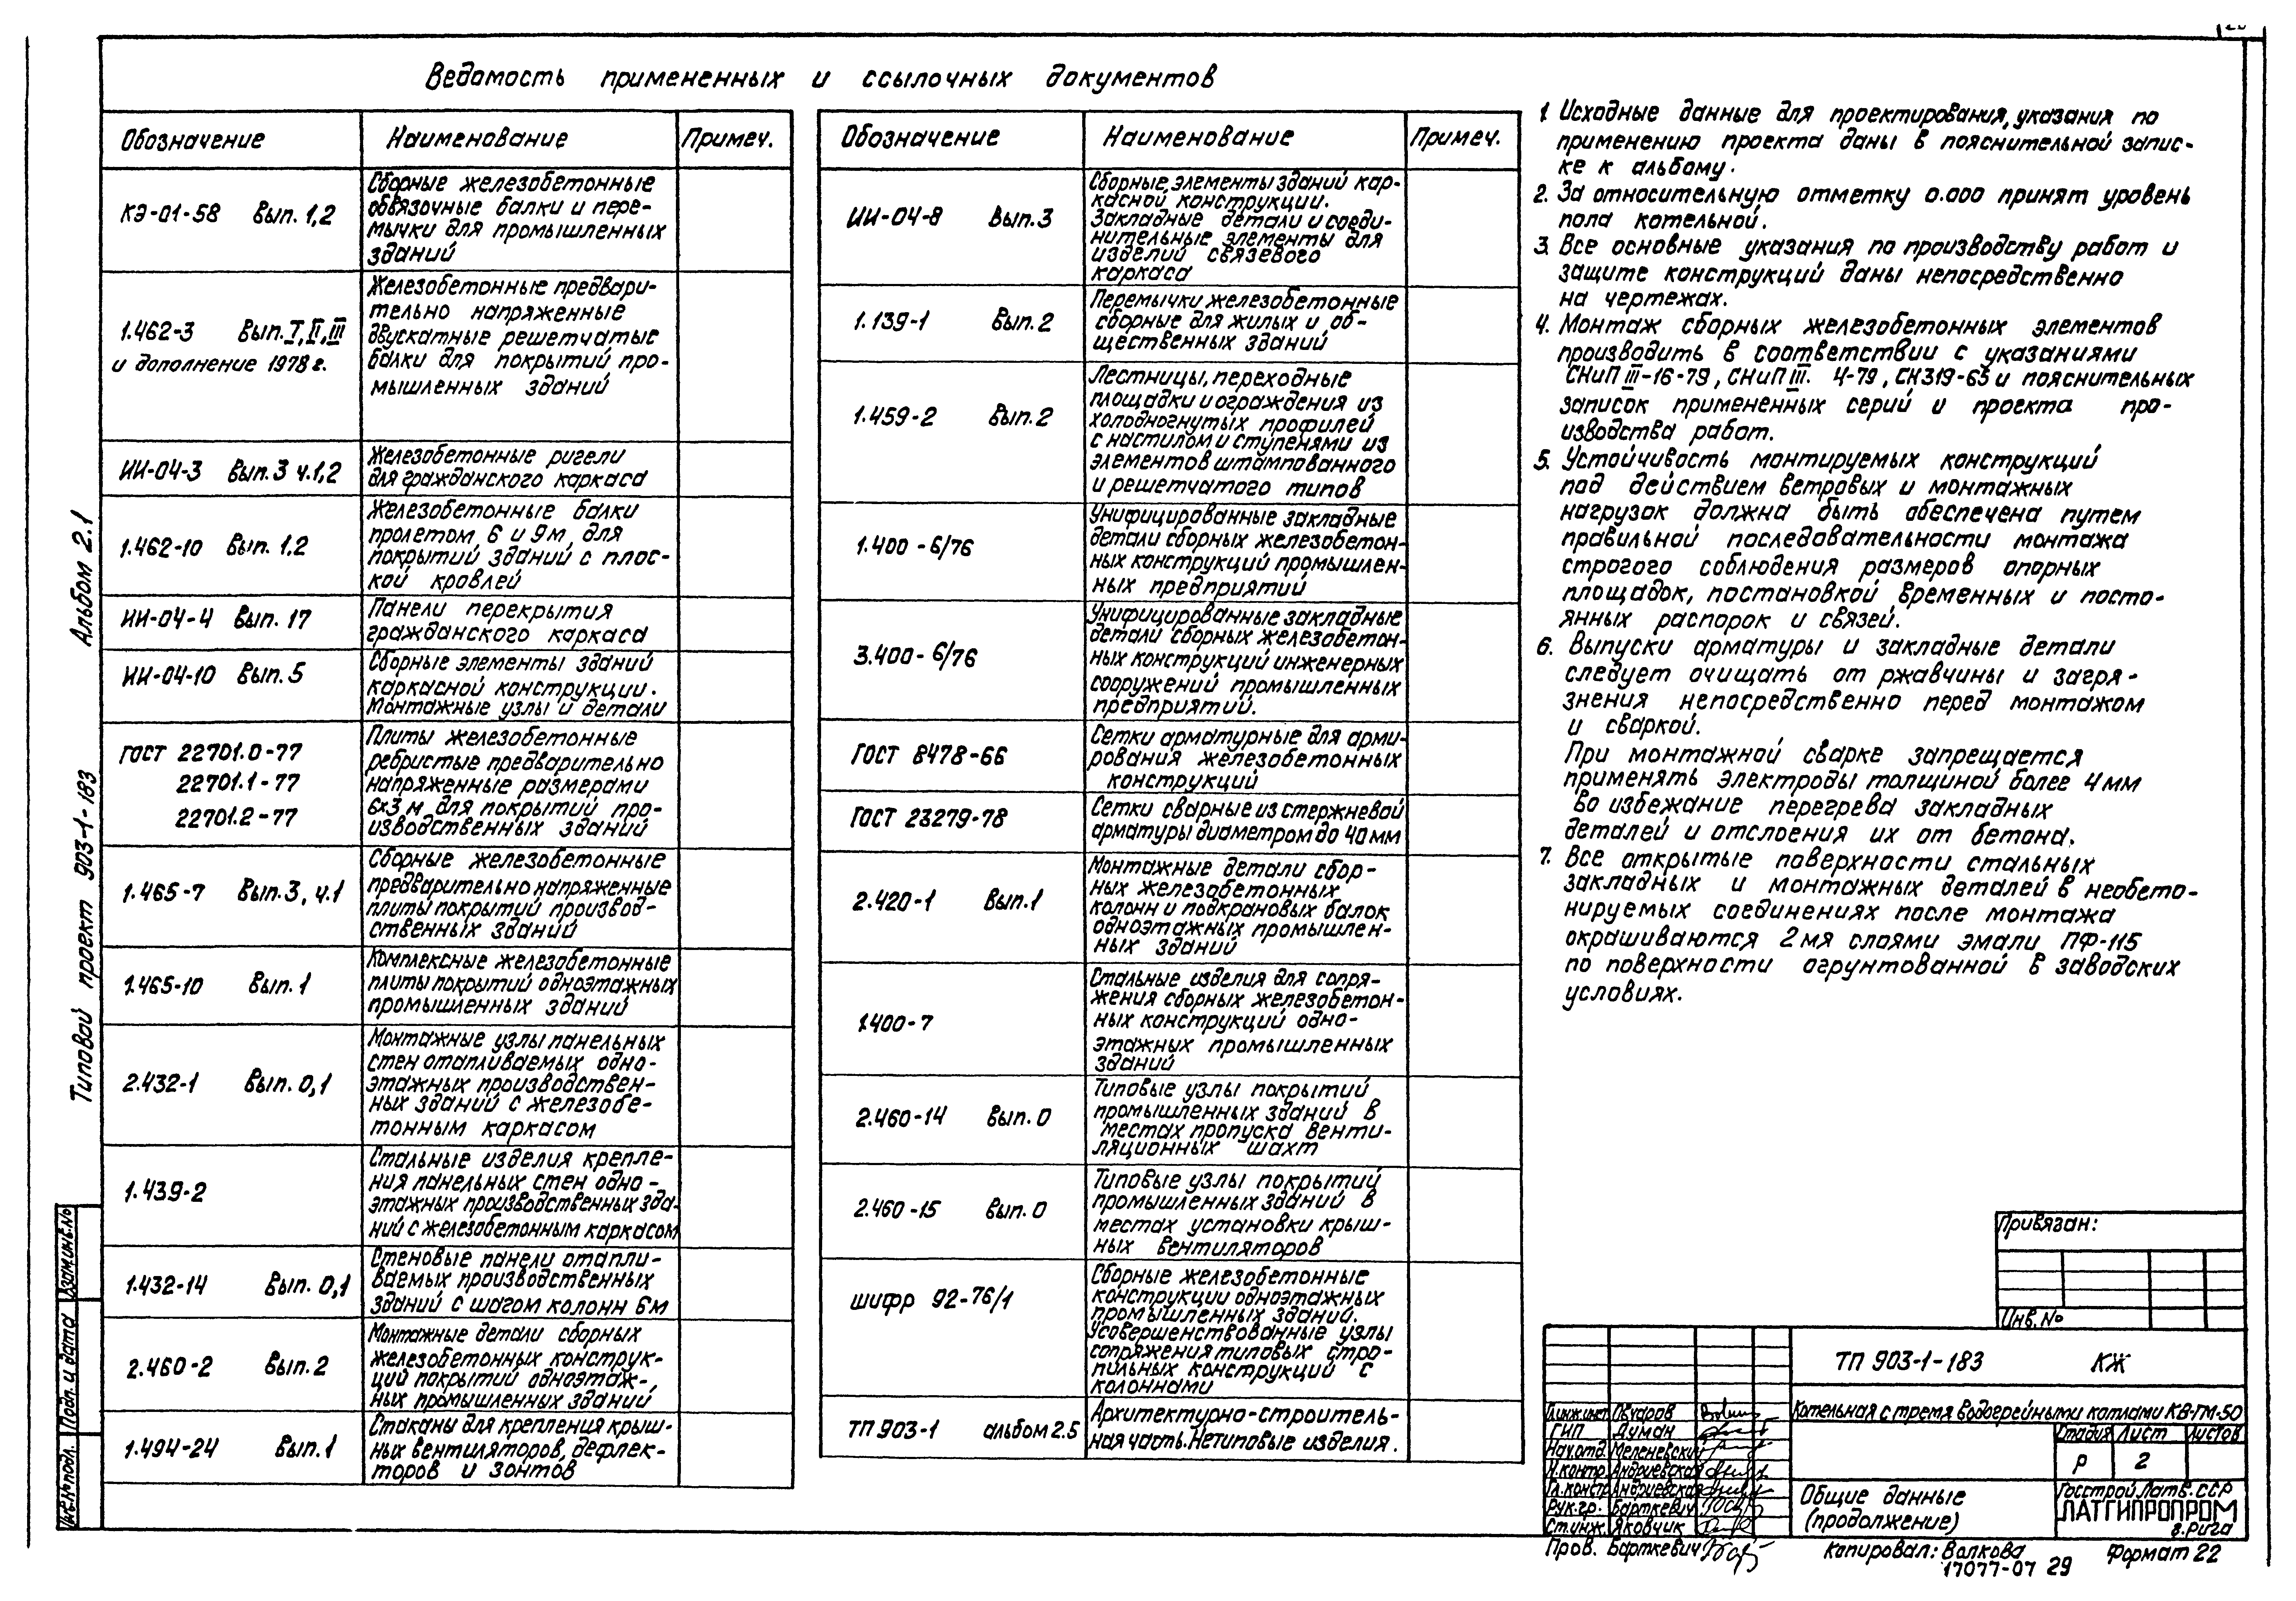 Ведомость примененных и ссылочных документов
Обозначение Наименование Примеч.
КЭ-01-58 Вып. 1,2
Сборные железобетонные
обвязочные балки и пере-
мычки для промышленных
зданий
1.462-3 Вып. I, II, III
и дополнение 1978 г.
Железобетонные предвари-
тельно напряженные
двускатные решетчатые
балки для покрытий про-
мышленных зданий
ИИ-04-3 Вып. 3 ч.1,2
Железобетонные ригели
для гражданского каркаса
1.462-10 Вып. 1.2
Железобетонные балки
пролетом 6 и 9м, для
покрытий зданий с плос-
кой кровлей
ИИ-04-4 Вып. 17
Панели перекрытия
гражданского каркаса
ИИ-04-10 Вып. 5
Сборные элементы зданий
каркасной конструкции.
Монтажные узлы и детали
ГОСТ 22701.0-77
22701.1-77
22701.2-77
Плиты железобетонные
ребристые предварительно
напряженные размерами
6х3 м для покрытий про-
изводственных зданий
1.465-7 Вып. 3, ч.1
Сборные железобетонные
предварительно напряженные
плиты покрытий производ-
ственных зданий
1.465-10 Вып. 1
Комплексные железобетонные
плиты покрытий одноэтажных
промышленных зданий
2.432-1 Вып. 0,1
Монтажные узлы панельных
стен отапливаемых одно-
этажных производствен-
ных зданий с железобе-
тонным каркасом
1.439-2
Стальные изделия крепле-
ния панельных стен одно-
этажных производственных зда-
ний с железобетонным каркасом
1.432-14 Вып. 0,1
Стеновые панели отапли-
ваемых производственных
зданий с шагом колонн 6м
2.460-2 Вып. 2
Монтажные детали сборных
железобетонных конструк-
ций покрытий одноэтаж-
ных промышленных зданий
1.494-24 Вып. 1
Стаканы для крепления крыш-
ных вентиляторов, дефлек-
торов и зонтов
Обозначение Наименование Примеч.
ИИ-04-8 Вып. 3
Сборные элементы зданий кар-
касной конструкции.
Закладные детали и соеди-
нительные элементы для
изделий связевого
каркаса
1.139-1 Вып. 2
Перемычки железобетонные
сборные для жилых и об-
щественных зданий
1.459-2 Вып. 2
Лестницы, переходные
площадки и ограждения из
холодногнутых профилей
с настилом и ступенями из
элементов штампованного
и решетчатого типов
1.400-6/76
Унифицированные закладные
детали сборных железобетон-
ных конструкций промышлен-
ных предприятий
3.400-6/76
Унифицированные закладные
детали сборных железобетон-
ных конструкций инженерных
сооружений промышленных
предприятий.
ГОСТ 8478-66
Сетки арматурные для арми-
рования железобетонных
конструкций
ГОСТ 23279-78
Сетки сварные из стержневой
арматуры диаметром до 40 мм
2.420-1 Вып. 1
Монтажные детали сбор-
ных железобетонных
колонн и подкрановых балок
одноэтажных промышлен-
ных зданий
1.400-7
Стальные изделия для сопря-
жения сборных железобетон-
ных конструкций одно-
этажных промышленных
зданий
2.460-14 Вып. 0
Типовые узлы покрытий
промышленных зданий в
местах пропуска венти-
ляционных шахт
2.460-15 Вып. 0
Типовые узлы покрытий
промышленных зданий в
местах установки крыш-
ных вентиляторов
шифр 92-76/1
Сборные железобетонные
конструкции одноэтажных
промышленных зданий.
Усовершенствованные узлы
сопряжения типовых стро-
пильных конструкций с
колоннами
ТП 903-1 альбом 2.5
Архитектурно-строитель-
ная часть. Нетиповые изделия.
1 Исходные данные для проектирования, указания по
применению проекта даны в пояснительной запис-
ке к альбому.
2. За относительную отметку 0.000 принят уровень
пола котельной.
3. Все основные указания по производству работ и
защите конструкций даны непосредственно
на чертежах.
4. Монтаж сборных железобетонных элементов
производить в соответствии с указаниями
СНиП III-16-79, СНиП III. 4-79, СН319-65 и пояснительных
записок примененных серий и проекта про-
изводства работ.
5. Устойчивость монтируемых конструкций
под действием ветровых и монтажных
нагрузок должна быть обеспечена путем
правильной последовательности монтажа
строгого соблюдения размеров опорных
площадок, постановкой временных и посто-
янных распорок и связей.
6. Выпуски арматуры и закладные детали
следует очищать от ржавчины и загря-
знения непосредственно перед монтажом
и сваркой.
При монтажной сварке запрещается
применять электроды толщиной более 4мм
во избежание перегрева закладных
деталей и отслоения их от бетона.
7. Все открытые поверхности стальных
закладных и монтажных деталей в необето-
нируемых соединениях после монтажа
окрашиваются 2мя слоями эмали ПФ-115
по поверхности огрунтованной в заводских
условиях.
Альбом 2.1
Типовой проект 903-1-183
Взам.инв.№
Подп. и дата
Инв.№ подл.
Привязан:
Инв. №
ТП 903-1-183 КЖ
Котельная с тремя водогрейными котлами КВ-ГМ-50
Гл.инж.инст. Гвуаров
ГИП Думан
Нач.отд. Меленевский
Н.контр. Андриевская
Гл.констр. Андриевская
Рук.гр. Барткевич
Ст.инж. Яковчик
Пров. Барткевич
Стадия Лист Листов
Р 2
Общие данные
(продолжение)
Госстрой Латв. ССР
ЛАТГИПРОПРОМ
г. Рига
Копировал: Волкова Формат 22
17077-07 29